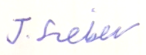 J. Sieber